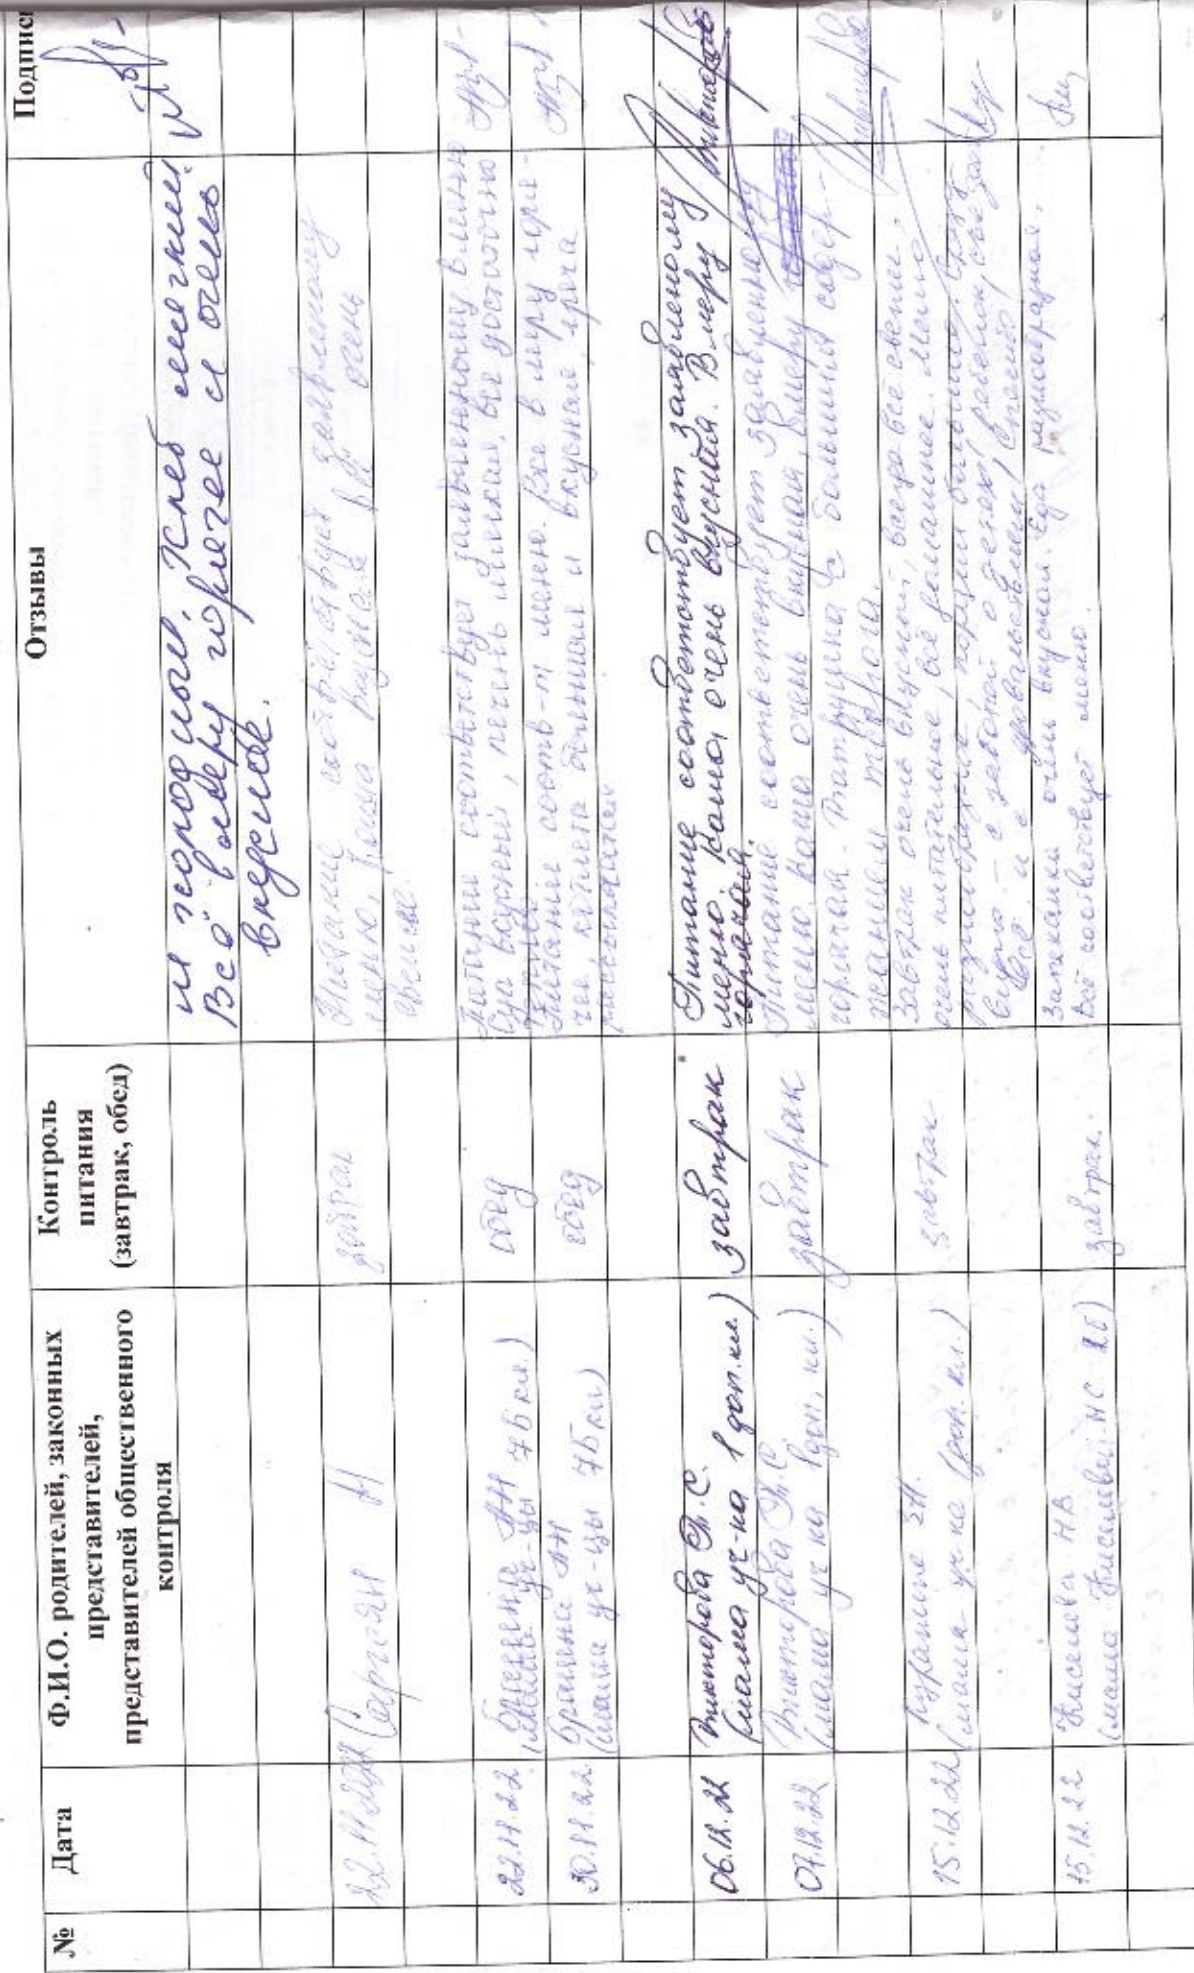 №
Дата
Ф.И.О. родителей, законных
представителей,
представителей общественного
контроля
Контроль
питания
(завтрак, обед)
Отзывы
Подпис
и холодный. Хлеб мягкий
Всё в меру горячее и очень
вкусное.
22.11 Саргсян Н
Питание соответствует заявленному
меню, каша вкусная очень
22.11.22
АН
(мама уч-цы 7Б кл.)
обед
Питание соответствует заявленному в меню
Суп вкусный, печень мягкая, все достаточно
30.11.22
АН
(мама уч-цы 7Б кл)
обед
Питание соотв-т меню. Уже в меру горя-
чее, котлета большая и вкусная, греча
рассыпчатая
06.12.22
Викторова Т.С.
(мама уч-ка 1 доп. кл.)
завтрак
Питание соответствует заявленому
меню. Каша очень вкусная. В меру
горячая.
07.12.22
Викторова Т.С
(мама уч-ка 1 доп. кл.)
завтрак
Питание соответствует заявленному
меню. Каша очень вкусная, в меру
горячая. Ватрушка с большим содер-
жанием творога.
15.12.22
(мама уч-ка доп. кл.)
завтрак
Завтрак очень вкусный, всегда всё свежее,
очень питательные, всё домашнее. Меню
разнообразное, порции большие.
видно - с заботой о детях,
все и с удовольствием!
15.12.22
Киселева НВ
(мама Киселевой НС 2б)
завтрак.
Запеканка очень вкусная. Еда разнообразная.
Всё соответствует меню.